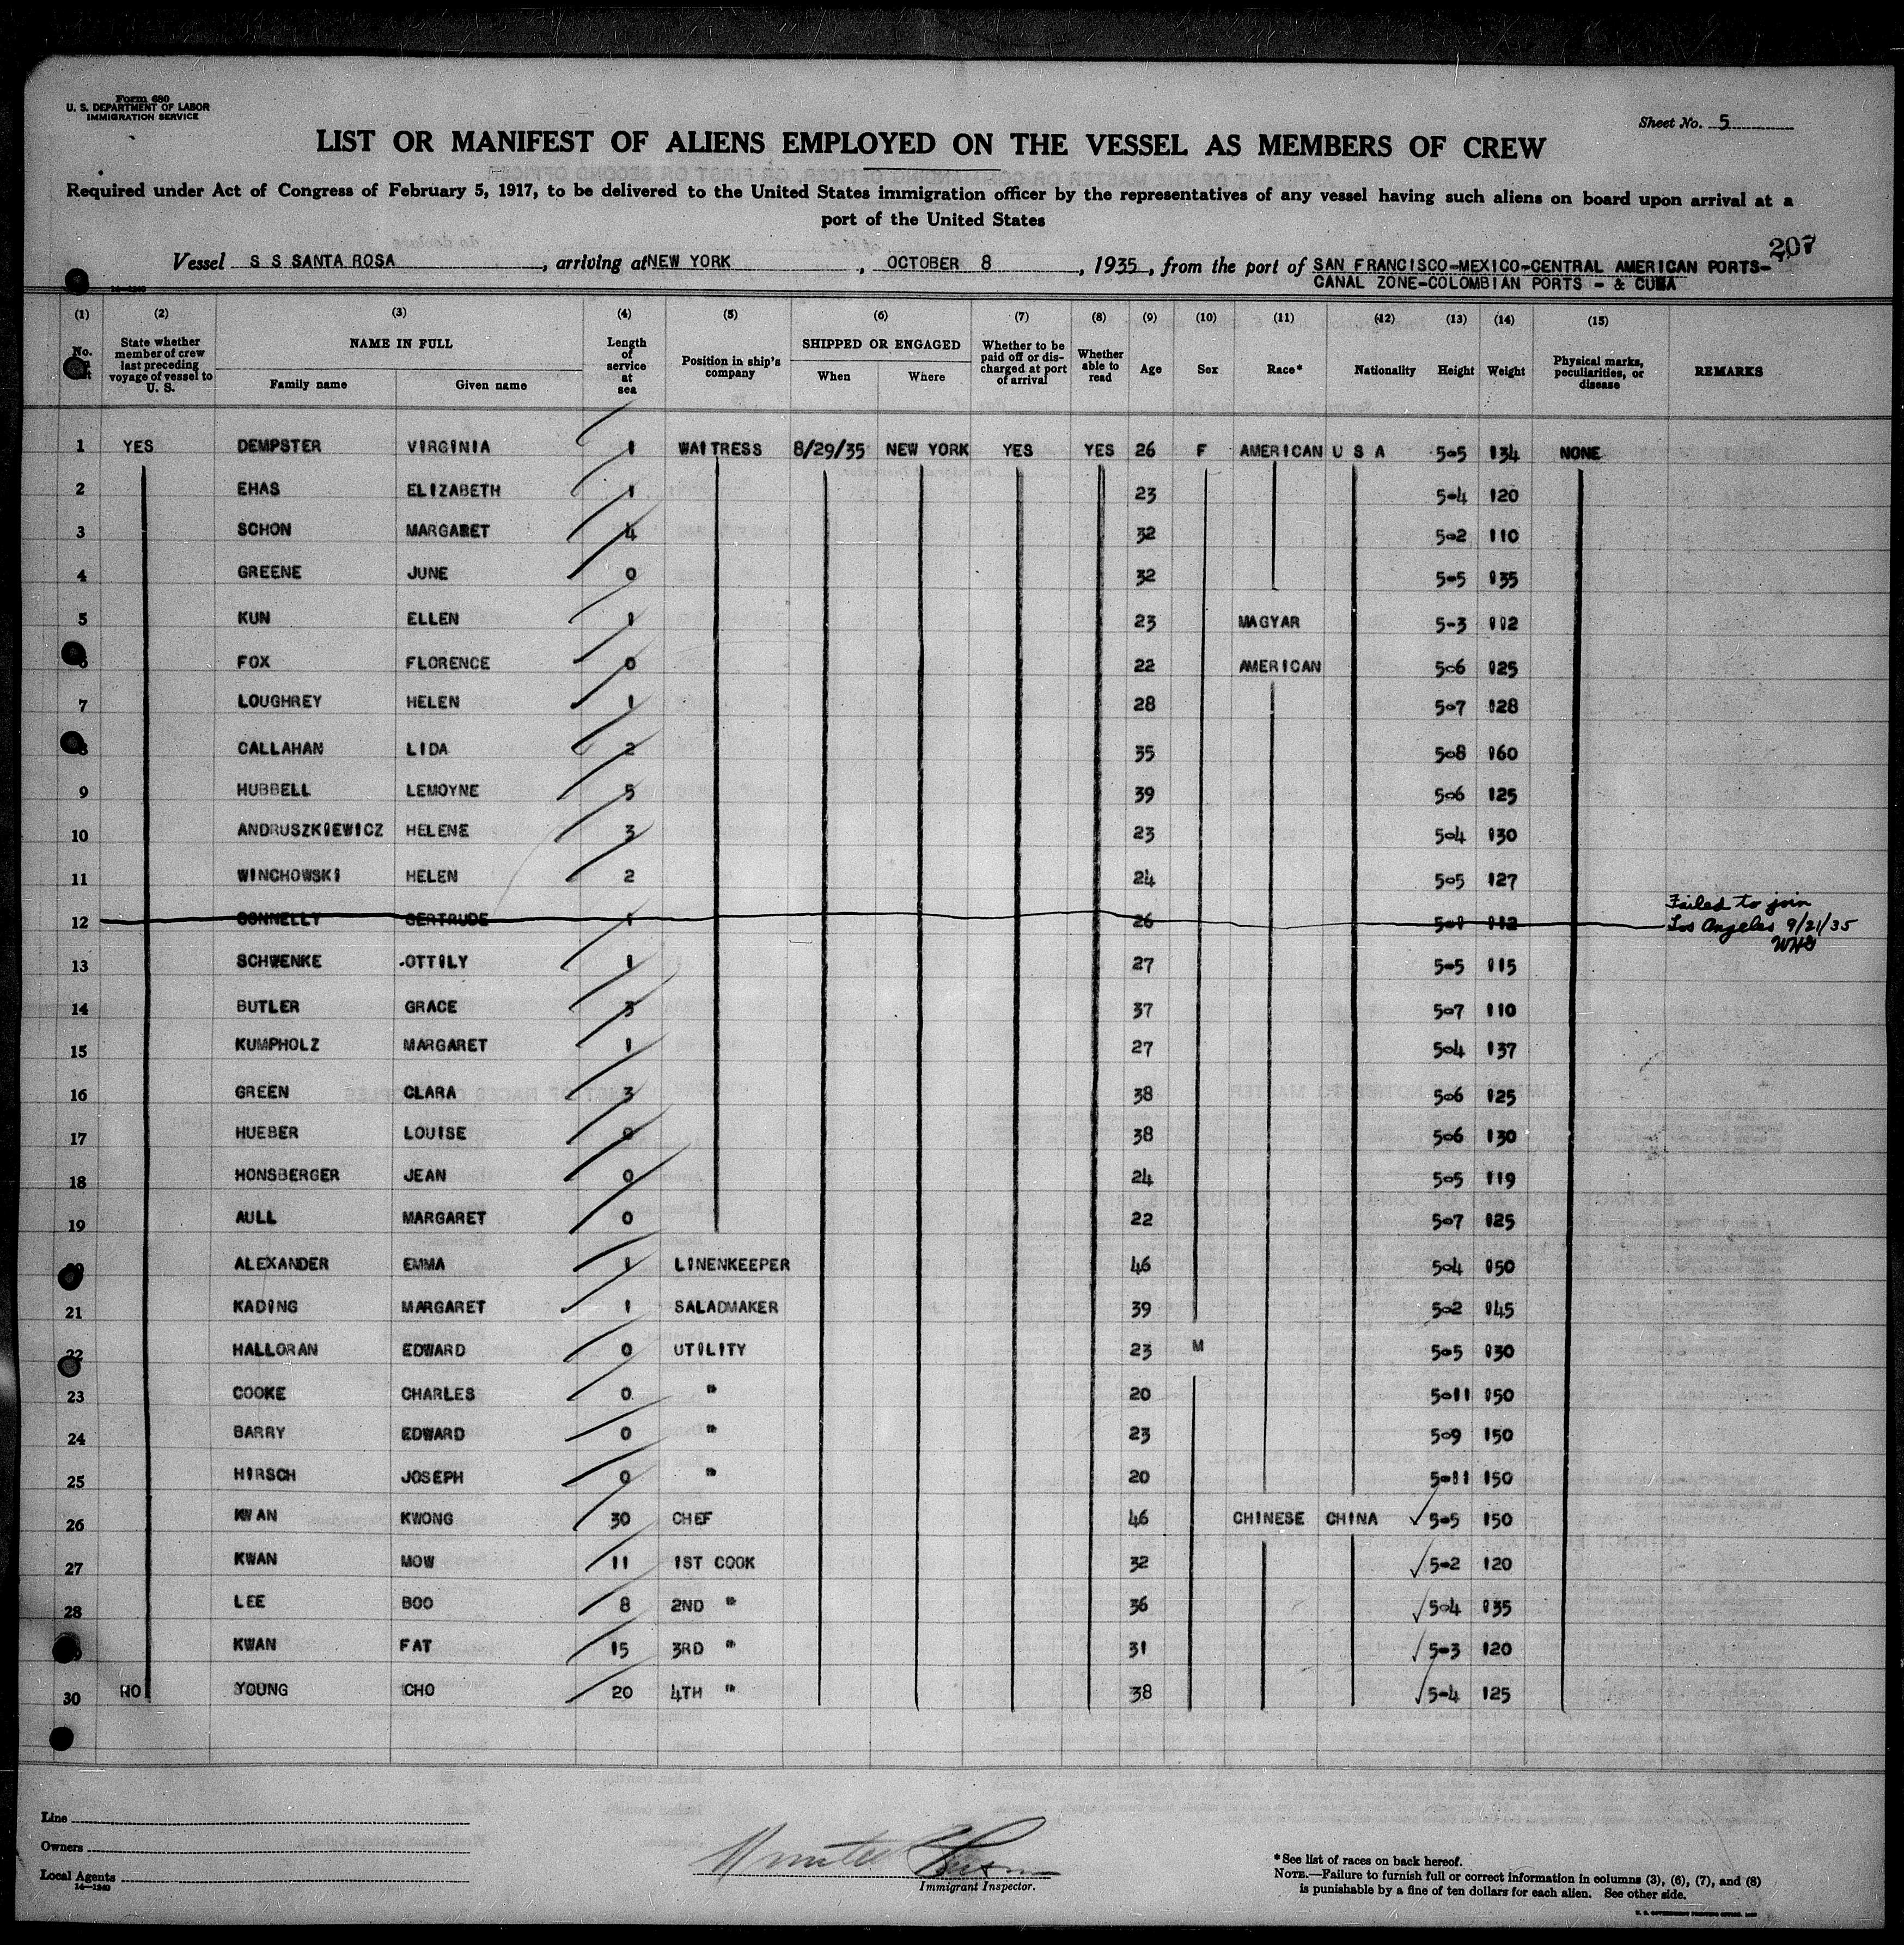 Form 680
U. S. DEPARTMENT OF LABOR
IMMIGRATION SERVICE
Sheet No. 5
LIST OR MANIFEST OF ALIENS EMPLOYED ON THE VESSEL AS MEMBERS OF CREW
Required under Act of Congress of February 5, 1917, to be delivered to the United States immigration officer by the representatives of any vessel having such aliens on board upon arrival at a
port of the United States
207
Vessel S S SANTA ROSA, arriving at NEW YORK, OCTOBER 8, 1935, from the port of SAN FRANCISCO-MEXICO-CENTRAL AMERICAN PORTS-
CANAL ZONE-COLOMBIAN PORTS - & CUBA
14-1240
(1) (2) (3) (4) (5) (6) (7) (8) (9) (10) (11) (12) (13) (14) (15)
No. State whether member of crew last preceding voyage of vessel to U. S. NAME IN FULL Family name Given name Length of service at sea Position in ship's company SHIPPED OR ENGAGED When Where Whether to be paid off or discharged at port of arrival Whether able to read Age Sex Race* Nationality Height Weight Physical marks, peculiarities, or disease REMARKS
1 YES DEMPSTER VIRGINIA 1 WAITRESS 8/29/35 NEW YORK YES YES 26 F AMERICAN U S A 5-5 134 NONE
2 EHAS ELIZABETH 1 23 5-4 120
3 SCHON MARGARET 4 32 5-2 110
4 GREENE JUNE 0 32 5-5 135
5 KUN ELLEN 1 23 MAGYAR 5-3 112
6 FOX FLORENCE 0 22 AMERICAN 5-6 125
7 LOUGHREY HELEN 1 28 5-7 128
8 CALLAHAN LIDA 2 35 5-8 160
9 HUBBELL LEMOYNE 5 39 5-6 125
10 ANDRUSZKIEWICZ HELENE 3 23 5-4 130
11 WINCHOWSKI HELEN 2 24 5-5 127
12 CONNELLY GERTRUDE 1 26 5-1 112 Failed to join
Los Angeles 9/21/35
WHG
13 SCHWENKE OTTILY 1 27 5-5 115
14 BUTLER GRACE 3 37 5-7 110
15 KUMPHOLZ MARGARET 1 27 5-4 137
16 GREEN CLARA 3 38 5-6 125
17 HUEBER LOUISE 0 38 5-6 130
18 HONSBERGER JEAN 0 24 5-5 119
19 AULL MARGARET 0 22 5-7 125
20 ALEXANDER EMMA 1 LINENKEEPER 46 5-4 150
21 KADING MARGARET 1 SALADMAKER 39 5-2 145
22 HALLORAN EDWARD 0 UTILITY 23 M 5-5 130
23 COOKE CHARLES 0 " 20 5-11 150
24 BARRY EDWARD 0 " 23 5-9 150
25 HIRSCH JOSEPH 0 " 20 5-11 150
26 KWAN KWONG 30 CHEF 46 CHINESE CHINA ✓ 5-5 150
27 KWAN MOW 11 1ST COOK 32 ✓ 5-2 120
28 LEE BOO 8 2ND " 36 ✓ 5-4 135
29 KWAN FAT 15 3RD " 31 ✓ 5-3 120
30 NO YOUNG CHO 20 4TH " 38 ✓ 5-4 125
Line
Owners
Local Agents
14-1240
Immigrant Inspector.
*See list of races on back hereof.
NOTE.—Failure to furnish full or correct information in columns (3), (6), (7), and (8)
is punishable by a fine of ten dollars for each alien. See other side.